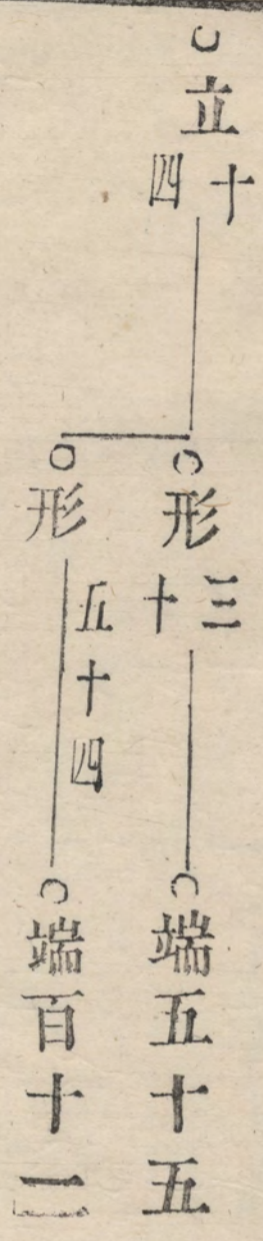 立十四
形三十
端五十五
形五十四
端百十二